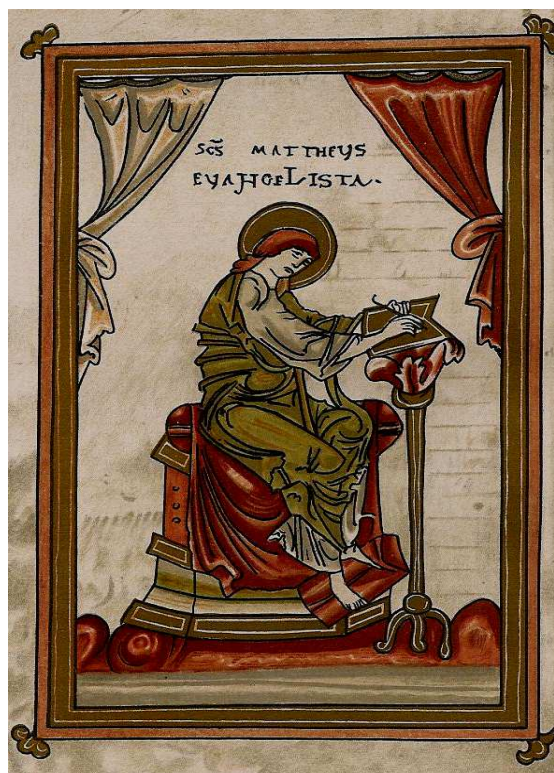 SCS̄ MATTHEUS
EUANGELISTA.